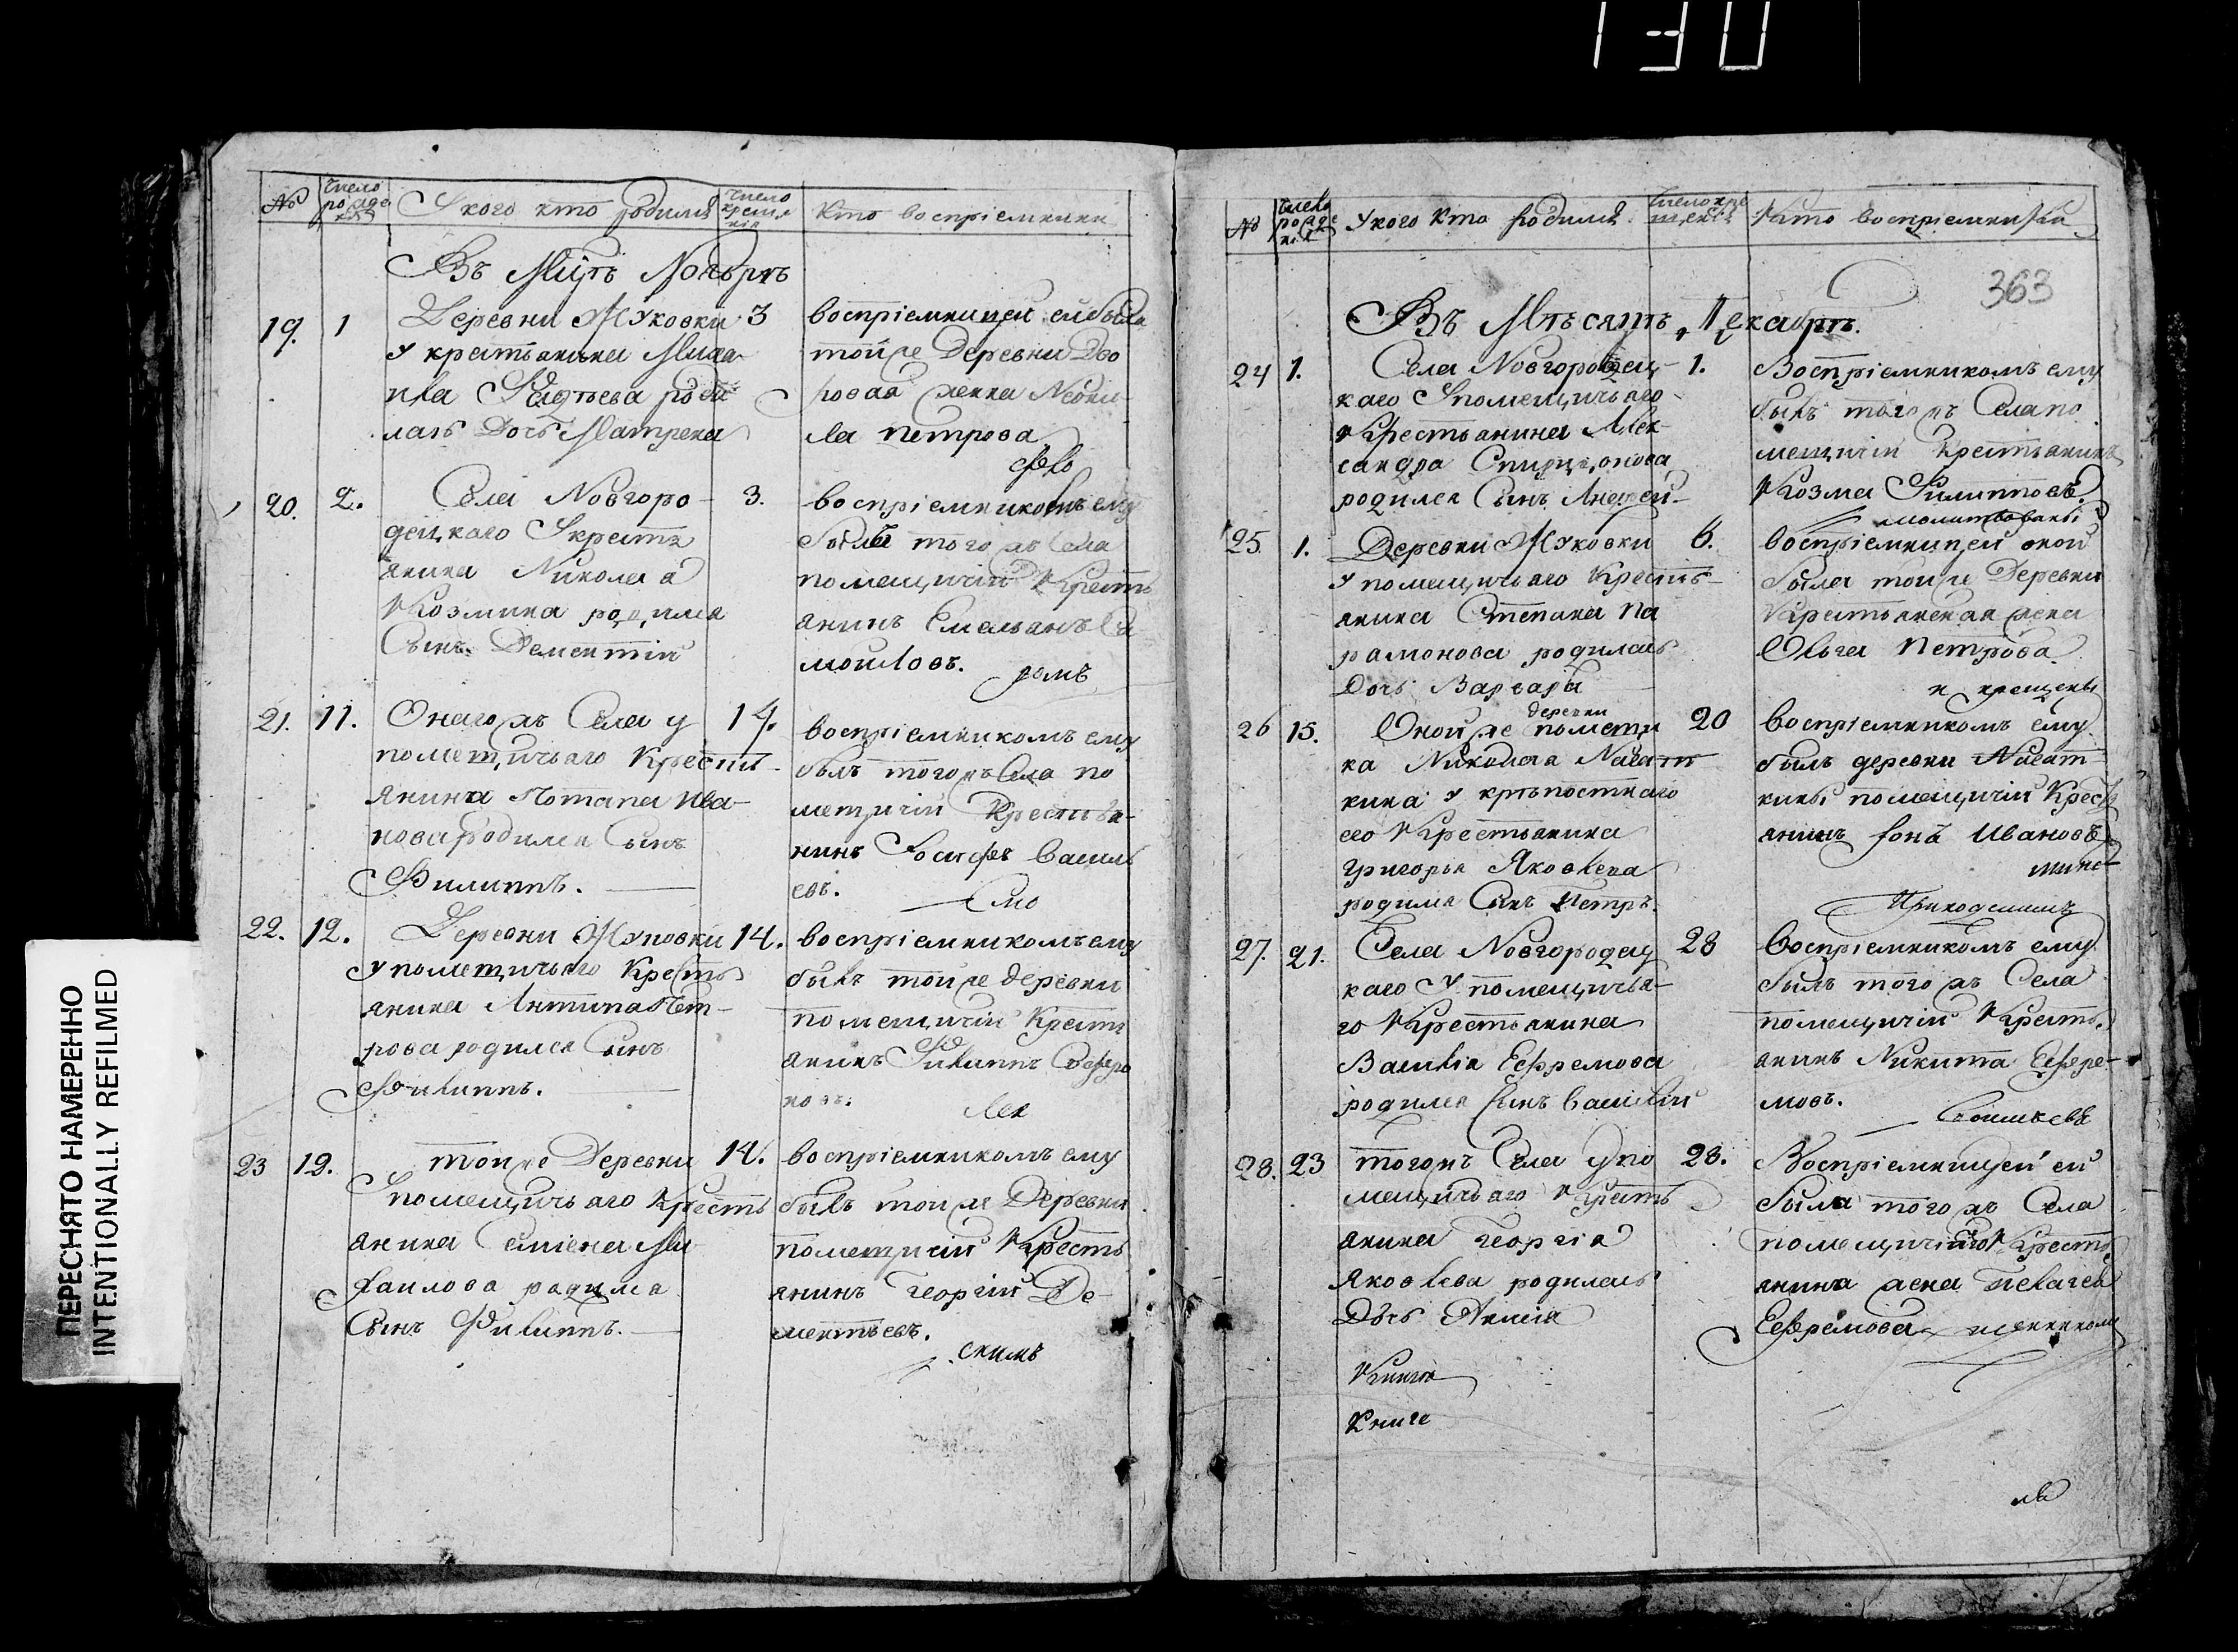 130
ПЕРЕСНЯТО НАМЕРЕННО
INTENTIONALLY REFILMED
№
Число рожде нія
У кого кто родился
Число креще нія
Кто воспріемники
Въ Мцѣ Ноябрѣ
19. 1
Деревни Жуковки
у крестьянина Миха-
ила Фадѣева роди
лась Дочь Матрена
3
воспріемницей ей была
той же Деревни Дво
ровая женка Неони-
ла Петрова
село
20. 2.
Села Новгоро-
децкаго У крестья
янина Николая
Козмина родился
Сынъ Дементій
3.
воспріемникомъ ему
былъ того жъ Села
помещичій Кресть
янинъ Емельянъ Са
мойловъ.
21. 11.
Онаго жъ Села у
помещичьаго Кресть-
янина Потапа Ива-
нова родился Сынъ
Филиппъ.
14.
воспріемникомъ ему
былъ того жъ Села по
мещичій Крестья-
нинъ Іосифъ Василь
евъ.
Смо
22. 12.
Деревни Жуковки
у помещичьяго Кресть
янина Антипа Пет-
рова родился Сынъ
Филиппъ.
14.
воспріемникомъ ему
былъ той же деревни
помещичій Кресть
янинъ Филиппъ Софро
новъ.
лен
23 12.
той же Деревни
У помещичьаго Кресть
янина Семіона Ми
хаилова родился
Сынъ Филиппъ.
14.
воспріемникомъ ему
былъ той же Деревни
помещичій Кресть
янинъ Георгій Де-
ментьевъ.
скимъ
№
Число рожде нія
У кого кто родился.
Число кре щенія
Кто воспріемники
363
Въ Мѣсяцѣ Декабрѣ.
24 1.
Села Новгородец-
каго У помещичьаго
Крестьянина Алек-
сандра Спиридонова
родился Сынъ Андрей
1.
Воспріемникомъ ему
былъ того жъ Села по
мещичій Крестьянинъ
Козма Филипповъ.
молитвованы
25. 1.
Деревни Жуковки
у помещичьаго Кресть-
янина Степана Па
рамонова родилась
Дочь Варвара
6.
воспріемницей оной
была той же Деревни
Крестьянская жена
Ольга Петрова.
и крещены
26 15.
Оной же деревни помещи
ка Николая
у крѣпостнаго
его Крестьянина
Григорья Яковлева
родился Сынъ Петръ.
20
воспріемникомъ ему
былъ деревни
помещичій Крес
янинъ Іона Ивановъ
Приходскимъ
27. 21.
Села Новгородец
каго У помещичья-
го Крестьянина
Василія Ефремова
родился Сынъ Василій
28
воспріемникомъ ему
былъ того жъ Села
помещичій Кресть
янинъ Никита Ефре-
мовъ.
28. 23
того жъ Села У по
мещичьаго Кресть
янина Георгія
Яковлева родилась
Дочь Анисія
28.
Воспріемницей ей
была того жъ Села
помещичьяго Кресть
янина жена Пелагея
Ефремова
Книга
Книге